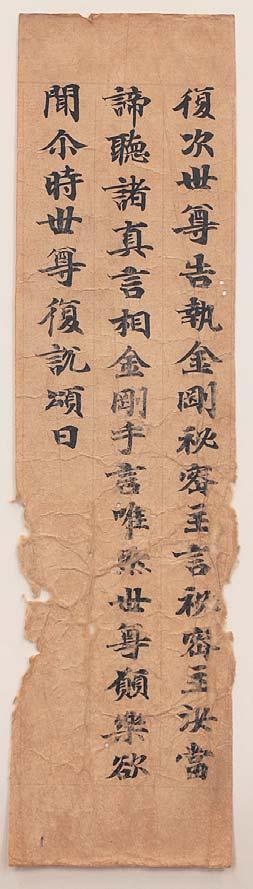 復次世尊告執金剛秘密主言秘密主汝當
諦聽諸真言相金剛手言唯然世尊願樂欲
聞尒時世尊復說頌曰